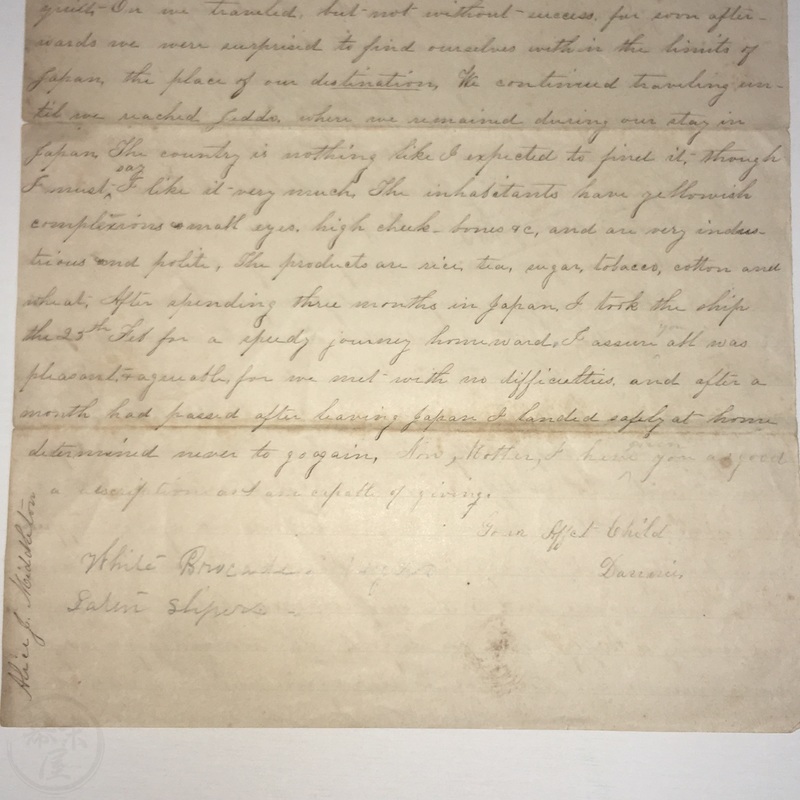 guilt. On we traveled, but not without success, for soon after-
wards we were surprised to find ourselves within the limits of
Japan, the place of our destination, We continued traveling un-
til we reached Jeddo, where we remained during our stay in
Japan, The country is nothing like I expected to find it, though
I must say I like it very much, The inhabitants have yellowish
complexions small eyes, high cheek-bones &c, and are very indus-
trious and polite, The products are rice, tea, sugar, tobacco, cotton and
wheat, After spending three months in Japan, I took the ship
the 25th Feb for a speedy journey homeward, I assure you all was
pleasant & agreeable, for we met with no difficulties, and after a
month had passed after leaving Japan I landed safely at home
determined never to go again, Now, Mother, I have given you as good
a description as I am capable of giving.
Your Affct Child
White Brocade
Dannie,
Saten Slipers
Alice J. Middleton